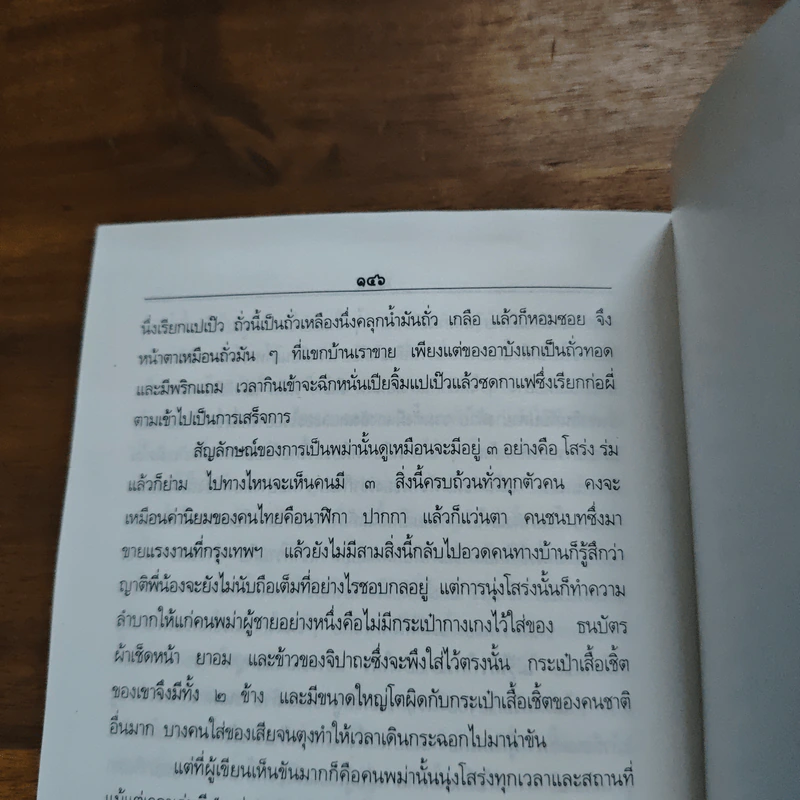 ๑๔๖
นึ่งเรียกแปเปี๊ว ถั่วนี้เป็นถั่วเหลืองนึ่งคลุกน้ำมันถั่ว เกลือ แล้วก็หอมซอย จึง
หน้าตาเหมือนถั่วมัน ๆ ที่แขกบ้านเราขาย เพียงแต่ของอาบังแกเป็นถั่วทอด
และมีพริกแถม เวลากินเข้าจะฉีกหนั่นเปียจิ้มแปเปี๊วแล้วซดกาแฟซึ่งเรียกก่อผี่
ตามเข้าไปเป็นการเสร็จการ
สัญลักษณ์ของการเป็นพม่านั้นดูเหมือนจะมีอยู่ ๓ อย่างคือ โสร่ง ร่ม
แล้วก็ย่าม ไปทางไหนจะเห็นคนมี ๓ สิ่งนี้ครบถ้วนทั่วทุกตัวคน คงจะ
เหมือนค่านิยมของคนไทยคือนาฬิกา ปากกา แล้วก็แว่นตา คนชนบทซึ่งมา
ขายแรงงานที่กรุงเทพฯ แล้วยังไม่มีสามสิ่งนี้กลับไปอวดคนทางบ้านก็รู้สึกว่า
ญาติพี่น้องจะยังไม่นับถือเต็มที่อย่างไรชอบกลอยู่ แต่การนุ่งโสร่งนั้นก็ทำความ
ลำบากให้แก่คนพม่าผู้ชายอย่างหนึ่งคือไม่มีกระเป๋ากางเกงไว้ใส่ของ ธนบัตร
ผ้าเช็ดหน้า ยาอม และข้าวของจิปาถะซึ่งจะพึงใส่ไว้ตรงนั้น กระเป๋าเสื้อเชิ้ต
ของเขาจึงมีทั้ง ๒ ข้าง และมีขนาดใหญ่โตผิดกับกระเป๋าเสื้อเชิ้ตของคนชาติ
อื่นมาก บางคนใส่ของเสียจนตุงทำให้เวลาเดินกระฉอกไปมาน่าขัน
แต่ที่ผู้เขียนเห็นขันมากก็คือคนพม่านั้นนุ่งโสร่งทุกเวลาและสถานที่